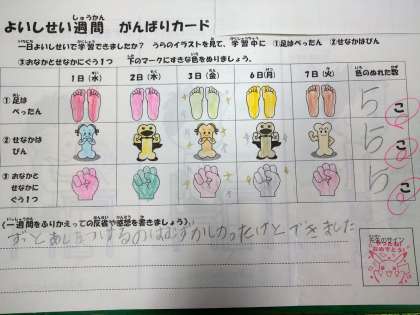 よいしせい週間 がんばりカード
一日よいしせいで学習できましたか? うらのイラストを見て、学習中に ①足はぺったん ②せなかはぴん
③おなかとせなかにぐう1つ 下のマークにすきな色をぬりましょう。
1日(水) 2日(木) 3日(金) 6日(月) 7日(火) 色のぬれた数
①足は
ぺったん
5 こ
②せなかは
ぴん
5 こ
③おなかと
せなかに
ぐう1つ
5 こ
〈一週間をふりかえっての反省や感想を書きましょう〉
ずっとあしをつけるのはむずかしかったけどできました